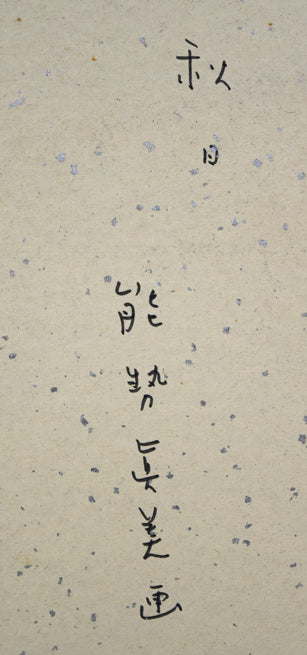 秋日
能勢眞美画